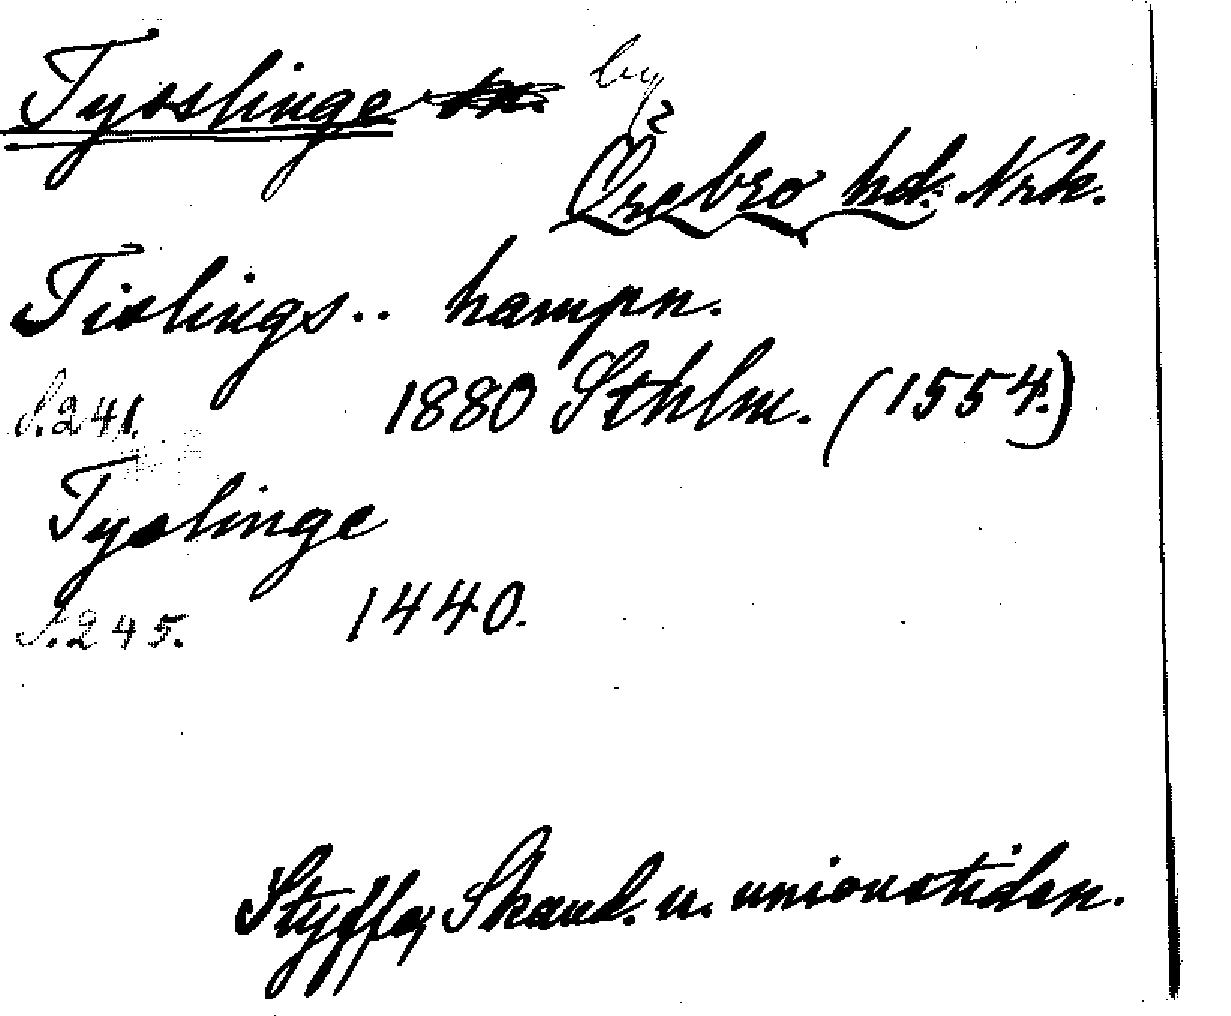 Tysslinge by
Örebro hd. Nrk.
Tislings.. hampn.
S. 241. 1880 Sthlm. (1554.)
Tyslinge
S. 245. 1440.
Styffe, Skand. u. unionstiden.